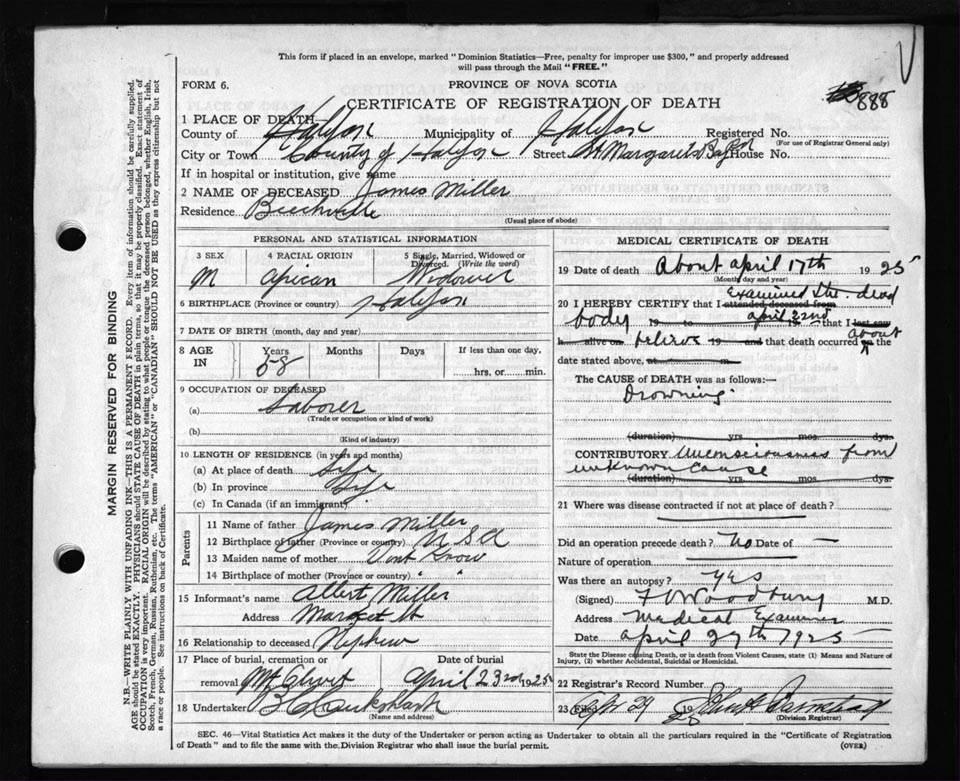 This form if placed in an envelope, marked "Dominion Statistics—Free, penalty for improper use $300," and properly addressed
will pass through the Mail "FREE."
FORM 6.
PROVINCE OF NOVA SCOTIA
888
CERTIFICATE OF REGISTRATION OF DEATH
1 PLACE OF DEATH—
County of Halifax Municipality of Halifax Registered No.
(For use of Registrar General only)
City or Town County of Halifax Street St Margarets Bay Rd House No.
If in hospital or institution, give name
2 NAME OF DECEASED James Miller
Residence Beechville
(Usual place of abode)
MARGIN RESERVED FOR BINDING
N.B.—WRITE PLAINLY WITH UNFADING INK—THIS IS A PERMANENT RECORD. Every item of information should be carefully supplied.
AGE should be stated EXACTLY. PHYSICIANS should STATE CAUSE OF DEATH in plain terms, so that it may be properly classified. Exact statement of
OCCUPATION is very important. RACIAL ORIGIN will be described by stating to what people or tongue the deceased person belonged, whether English, Irish,
Scotch, French, German, Russian, Ruthenian, etc. The terms "AMERICAN" or "CANADIAN" SHOULD NOT BE USED as they express citizenship but not
a race or people. See instructions on back of Certificate.
PERSONAL AND STATISTICAL INFORMATION
3 SEX
M
4 RACIAL ORIGIN
African
5 Single, Married, Widowed or
Divorced. (Write the word)
Widower
6 BIRTHPLACE (Province or country) Halifax
7 DATE OF BIRTH (month, day and year)
8 AGE
IN
Years Months Days If less than one day,
58
hrs. or min.
9 OCCUPATION OF DECEASED
(a) Laborer
(Trade or occupation or kind of work)
(b)
(Kind of industry)
10 LENGTH OF RESIDENCE (in years and months)
(a) At place of death Life
(b) In province Life
(c) In Canada (if an immigrant)
Parents
11 Name of father James Miller
12 Birthplace of father (Province or country) N S
13 Maiden name of mother Dont Know
14 Birthplace of mother (Province or country) " "
15 Informant's name Albert Miller
Address Market St
16 Relationship to deceased Nephew
17 Place of burial, cremation or
removal Mt Olivet
Date of burial
April 23rd 1925
18 Undertaker
(Name and address)
MEDICAL CERTIFICATE OF DEATH
19 Date of death About april 17th 1925
(Month, day and year)
20 I HEREBY CERTIFY that I attended deceased from
Examined the dead
body 19 to april 22nd 19 that I last saw
h alive on believe 19 and that death occurred on the about
date stated above, at m.
The CAUSE of DEATH was as follows:—
Drowning
(duration) yrs. mos. dys.
CONTRIBUTORY Unconsciousness from
unknown cause
(duration) yrs. mos. dys.
21 Where was disease contracted if not at place of death?
Did an operation precede death? No Date of —
Nature of operation
Was there an autopsy? yes
(Signed) Woodbury M.D.
Address Medical Examiner
Date april 27th 1925
State the Disease causing Death, or in death from Violent Causes, state (1) Means and Nature of
Injury, (2) whether Accidental, Suicidal or Homicidal.
22 Registrar's Record Number
23 Filed Apr 29 1925
(Division Registrar)
SEC. 46—Vital Statistics Act makes it the duty of the Undertaker or person acting as Undertaker to obtain all the particulars required in the "Certificate of Registration
of Death" and to file the same with the Division Registrar who shall issue the burial permit. (OVER)